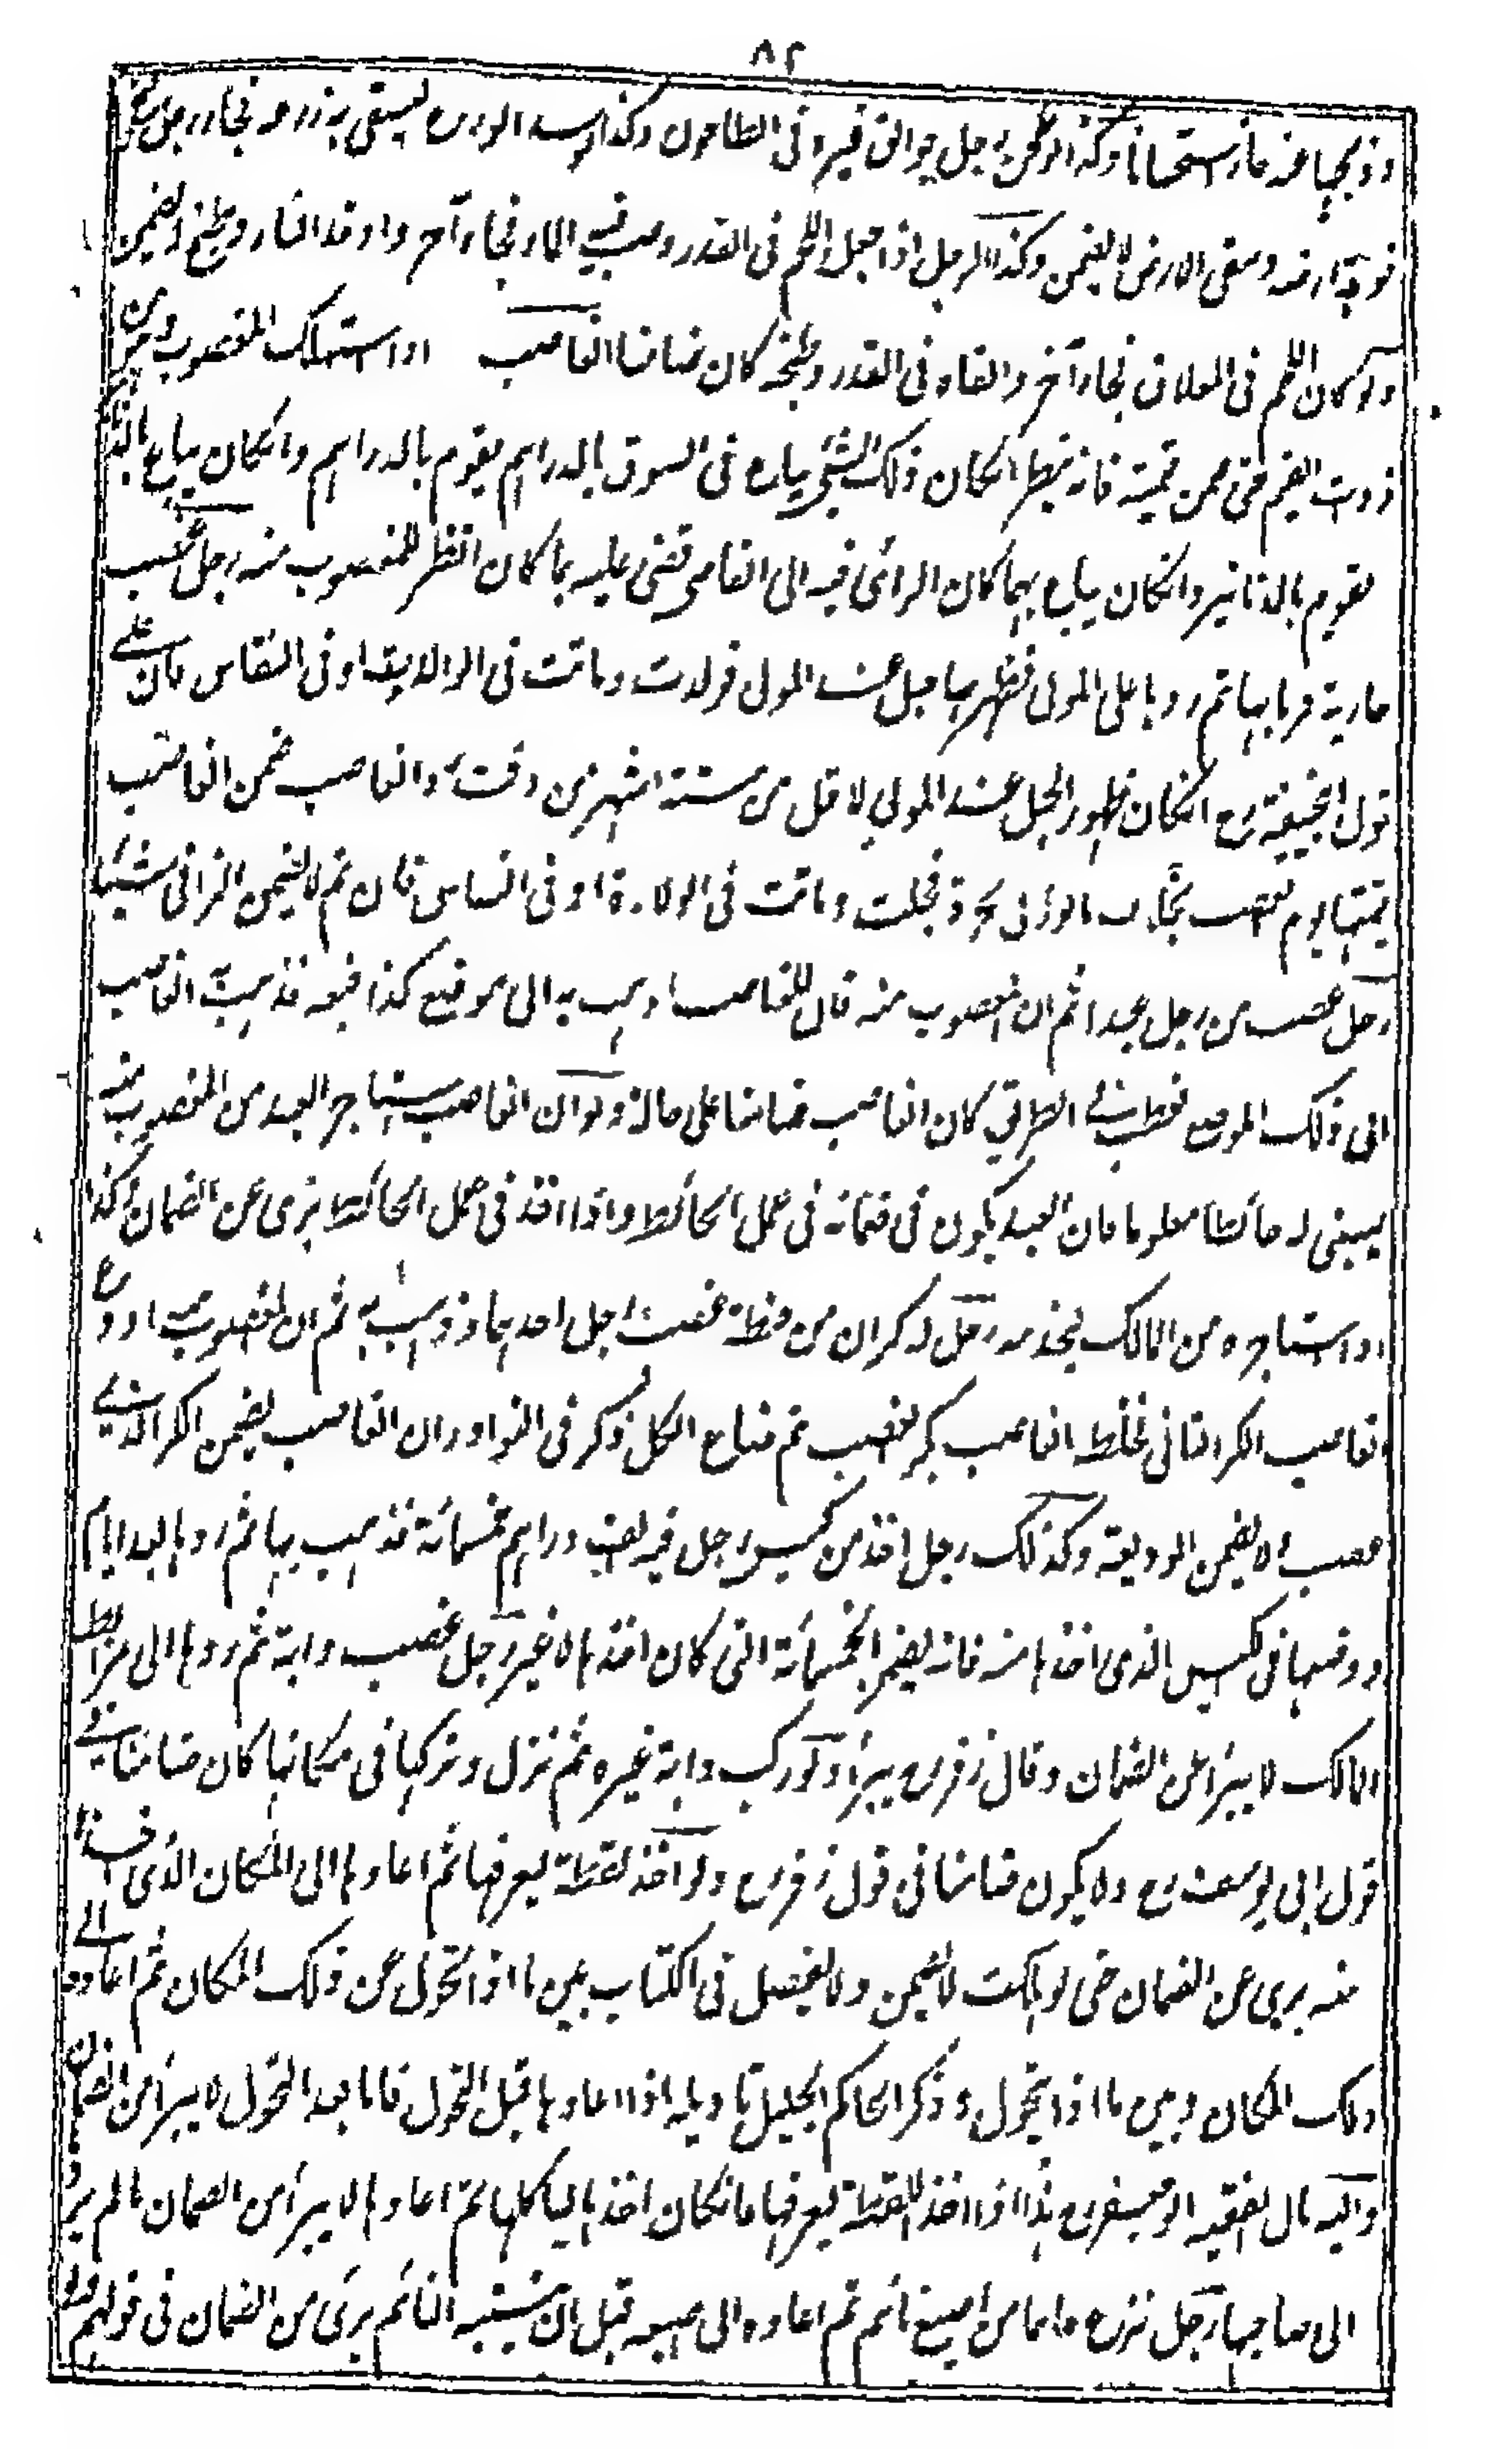 ٨٢
وذبحها عنه جاز استحسانا وكذا لو طحن رجل جوالق غيره في الطاحون وكذا لو سد الوادي ليسقي به زرعه فجاء رجل
فوجه ارضه وسقى الارض لا يضمن وكذا الرجل اذا جعل اللحم في القدر وصب فيه الماء فجاء آخر واوقد النار وطبخ لا يضمن
ولو كان اللحم في المعلاق فجاء آخر والقاه في القدر وطبخه كان ضامنا الغاصب اذا استهلك المغصوب وهو من
ذوات القيم حتى ضمن قيمته فانه ينظر انكان ذلك الشيء يباع في السوق بالدراهم يقوم بالدراهم وانكان يباع بالدنانير
يقوم بالدنانير وانكان يباع بهما كان الرأي فيه الى القاضي يقضي عليه بما كان انظر للمغصوب منه رجل غصب
جارية فزنا بها ثم ردها على المولى فظهر بها حبل عند المولى فولدت وماتت في الولادة او في النفاس فان على
قول ابيحنيفة رح انكان ظهور الحبل عند المولى لاقل من ستة اشهر من وقت رد الغاصب ضمن الغاصب
قيمتها يوم الغصب بخلاف ما لو زنى بحرة فحبلت وماتت في الولادة او في النفاس فان ثم لا يضمن الزاني شيئا
رجل غصب من رجل عبدا ثم ان المغصوب منه قال للغاصب اذهب به الى موضع كذا فبعه فذهب به الغاصب
الى ذلك الموضع فعطب في الطريق كان الغاصب ضامنا على حاله ولو ان الغاصب استاجر العبد من المغصوب منه
ليبني له حائطا معلوما فان العبد يكون في ضمانه في عمل الحائط واذا اخذ في عمل الحائط برئ عن الضمان وكذا
لو استاجره من المالك لخدمته رجل له كران من حنطة غصب رجل احدهما وذهب به ثم ان المغصوب منه اودع
الغاصب الكر الثاني فخلطه الغاصب بكر الغصب ثم ضاع الكل ذكر في النوادر ان الغاصب يضمن الكر الذي
غصب ولا يضمن الوديعة وكذلك رجل اخذ من كيس رجل فيه الف دراهم خمسمائة فذهب بها ثم ردها بعد ايام
ووضعها في الكيس الذي اخذها منه فانه يضمن الخمسمائة التي كان اخذها لا غير رجل غصب دابة ثم ردها الى مربط
المالك لا يبرأ عن الضمان وقال زفر رح يبرأ ولو ركب دابة غيره ثم نزل وتركها في مكانها كان ضامنا في
قول ابي يوسف رح ولا يكون ضامنا في قول زفر رح ولو اخذ لقطة ليعرفها ثم اعادها الى المكان الذي اخذها
منه برئ عن الضمان حتى لو هلكت لا يضمن ولا يفصل في الكتاب بين ما اذا تحول عن ذلك المكان ثم اعادها الى
ذلك المكان وبين ما اذا لم يتحول وذكر الحاكم الجليل تاويله اذا اعادها قبل التحول فاما بعد التحول لا يبرأ من الضمان
واليه مال الفقيه ابو جعفر رح هذا اذا اخذ اللقطة ليعرفها فان كان اخذها لياكلها ثم اعادها لا يبرأ من الضمان ما لم يردها
الى صاحبها رجل نزع خاتما من اصبع نائم ثم اعاده الى اصبعه قبل ان ينتبه النائم برئ من الضمان في قولهم ولو